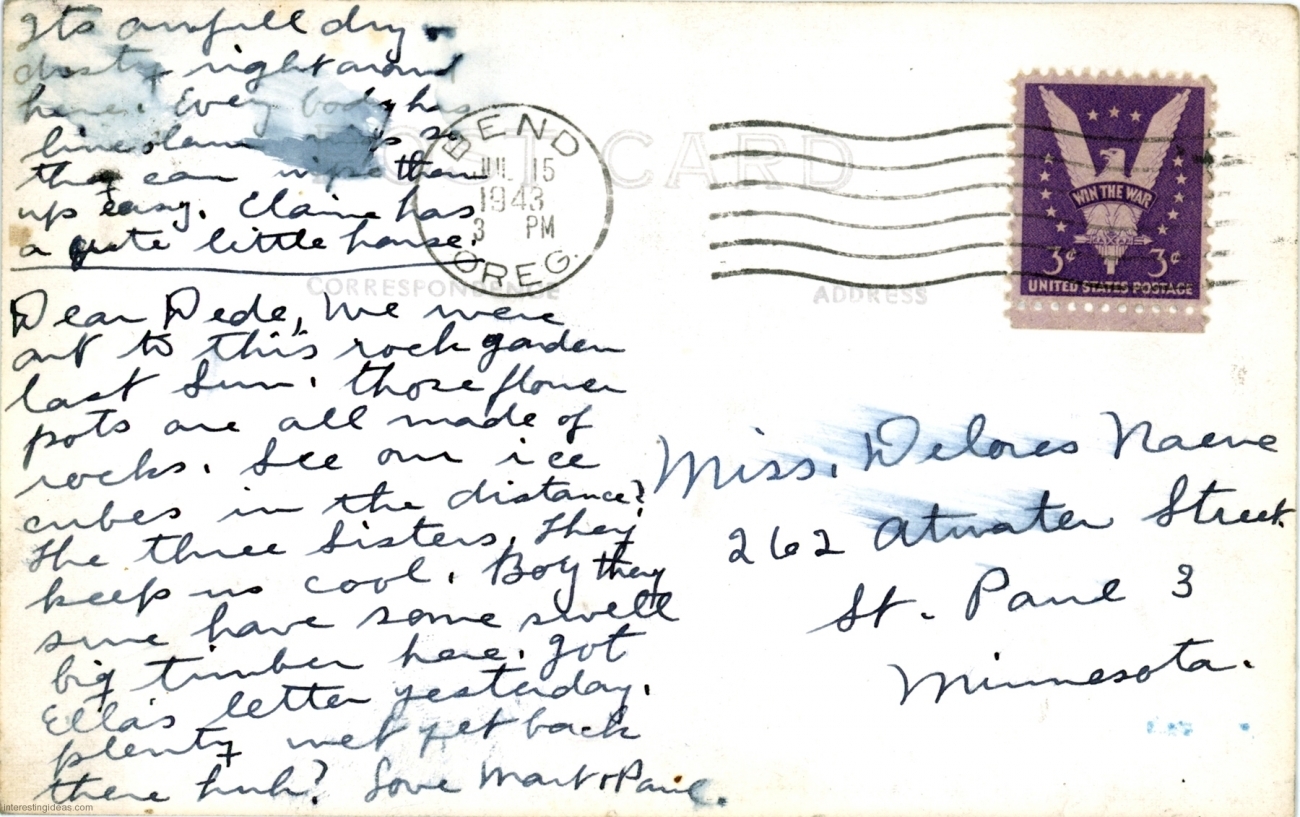 Its awfull dry
dusty right around
here. Every body has
linoleum rugs so
they can wipe them
up easy. Claire has
a cute little house.
Dear Dede, We were
out to this rock garden
last Sun. Those flower
pots are all made of
rocks. See our ice
cubes in the distance?
The three Sisters, They
keep us cool. Boy they
sure have some swell
big timber here. Got
Ella's letter yesterday.
plenty wet yet back
there huh? Love Mart + Paul.
POST CARD
CORRESPONDENCE
ADDRESS
BEND
JUL 15
1943
3 PM
OREG.
WIN THE WAR
3¢ 3¢
UNITED STATES POSTAGE
Miss. Delores Naeve
262 Atwater Street
St. Paul 3
Minnesota.
interestingideas.com